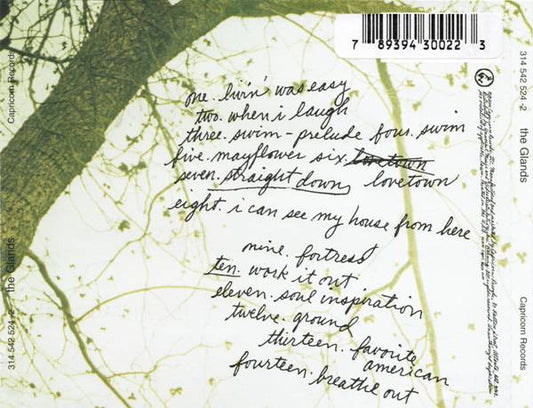 7 89394 30022 3
one. livin' was easy
two. when i laugh
three. swim - prelude four. swim
five. mayflower six. lovetown
seven. straight down lovetown
eight. i can see my house from here
nine. fortress
ten. work it out
eleven. soul inspiration
twelve. ground
thirteen. favorite
american
fourteen. breathe out
314 542 524-2 the Glands Capricorn Records
314 542 524-2 the Glands Capricorn Records